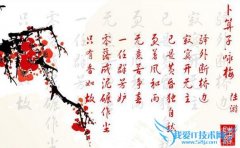 卜算子·咏梅
陆游
驿外断桥边
寂寞开无主
已是黄昏独自愁
更著风和雨
无意苦争春
一任群芳妒
零落成泥碾作尘
只有香如故